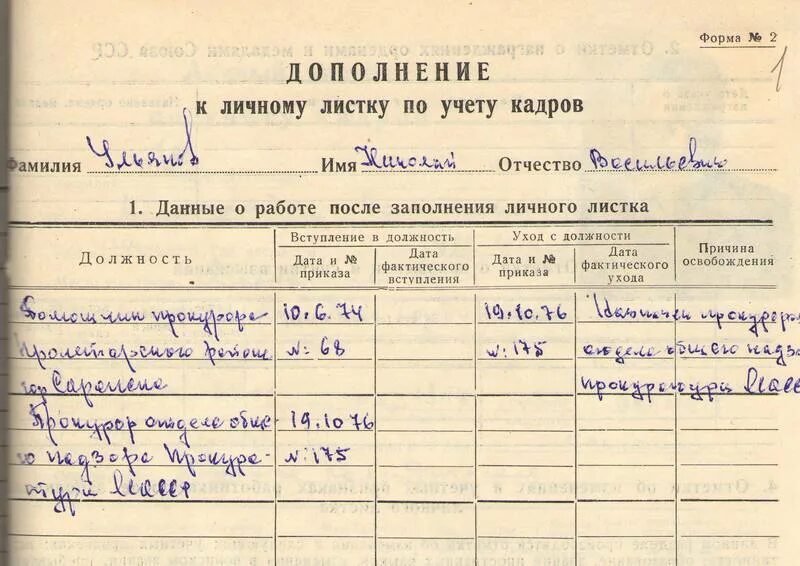 Форма № 2
1
ДОПОЛНЕНИЕ
к личному листку по учету кадров
Фамилия Ульянов Имя Николай Отчество Васильевич
1. Данные о работе после заполнения личного листка
Должность
Вступление в должность
Уход с должности
Причина освобождения
Дата и № приказа
Дата фактического вступления
Дата и № приказа
Дата фактического ухода
Помощник прокурора 10.6.74 19.10.76 Назначен прокурором
Пролетарского района № 68 № 175 отдела общего надзора
гор Саранска прокуратуры МАССР
Прокурор отдела обще- 19.10 76
го надзора Прокура- № 175
туры МАССР